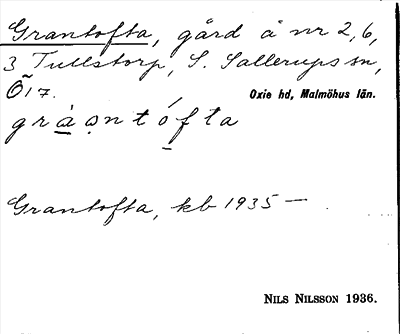 Grantofta, gård å nr 2, 6,
3 Tullstorp, S. Sallerups sn,
Ö17. Oxie hd, Malmöhus län.
Grantofta, kb 1935 —
NILS NILSSON 1936.